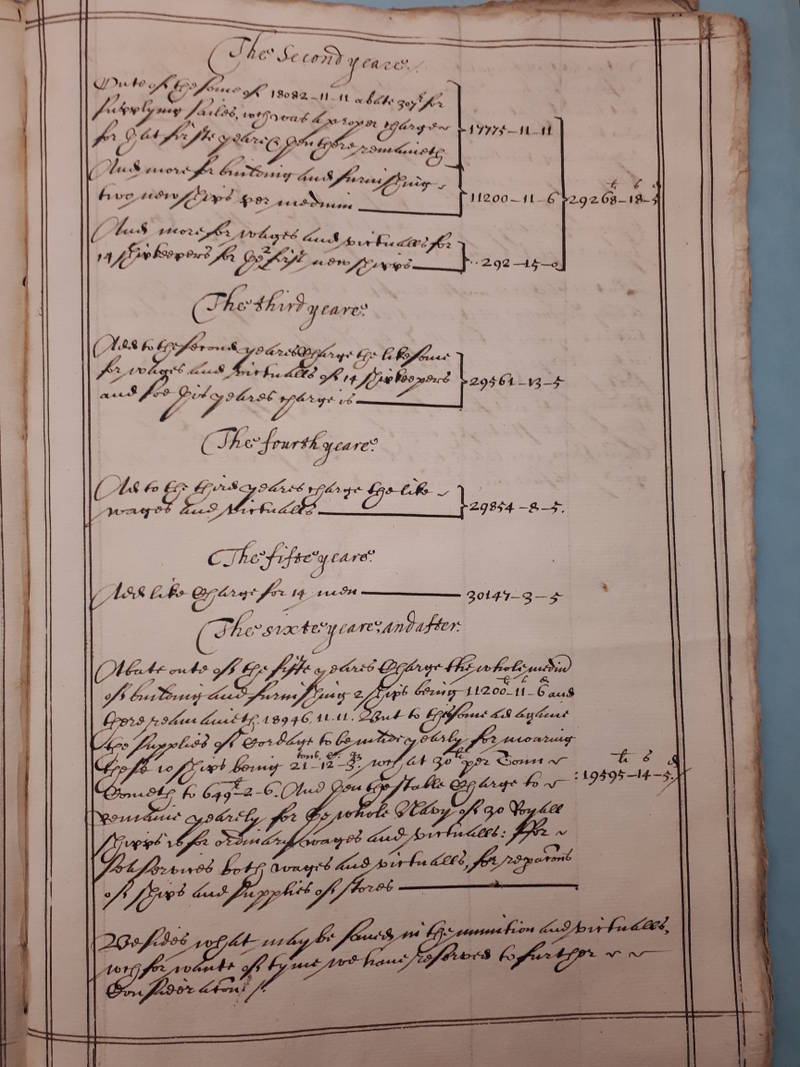 The Second yeare.
Oute of the some of 18082-11-11 abate 307li for
supplying sailes, wch was a proper charge
for that firste yeare & then there remaineth
17775-11-11
And more for building and furnishing
two new ships per medium
11200-11-6
li s d
29268-18-5
And more for wages and victualls for
14 shipkeepers for the 2 first new shipps
292-15-0
The third yeare.
Add to the second yeares charge the like some
for wages and victualls of 14 shipkeepers
and soe this yeares charge is
29561-13-5
The fourth yeare.
Ad to the third yeares charge the like
wages and victualls
29854-8-5.
The fifte yeare.
Add like Charge for 14 men
30147-3-5
The sixte yeare and after.
Abate oute of the fifte yeares Charge the whole mediu
of building and furnishing 2 ships being 11200-11-6 and
there remaineth 18946.11.11. But to this some ad againe
the supplies of Cordage to be made yearly for moaring
these 10 ships being 21-12-3. wch at 30li per Tonn
Cometh to 649li-2-6. And then the stable Charge to
remaine yearely for the whole Navy of 30 Royall
shipps is for ordinary wages and victualls: ffor
Sea services both wages and victualls, for reparons
of ships and supplies of stores
li s d
:19595-14-5.
Besides what may be saved in the munition and victualls,
wch for wante of tyme we have reserved to further
Consideraton.